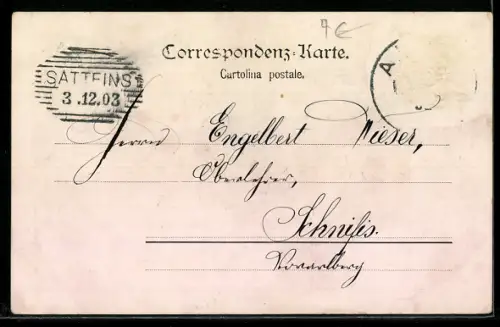 7€
Correspondenz-Karte.
Cartolina postale.
SATTEINS
3.12.03
A
Herrn Engelbert Wieser,
Oberlehrer,
Schnifis.
Vorarlberg